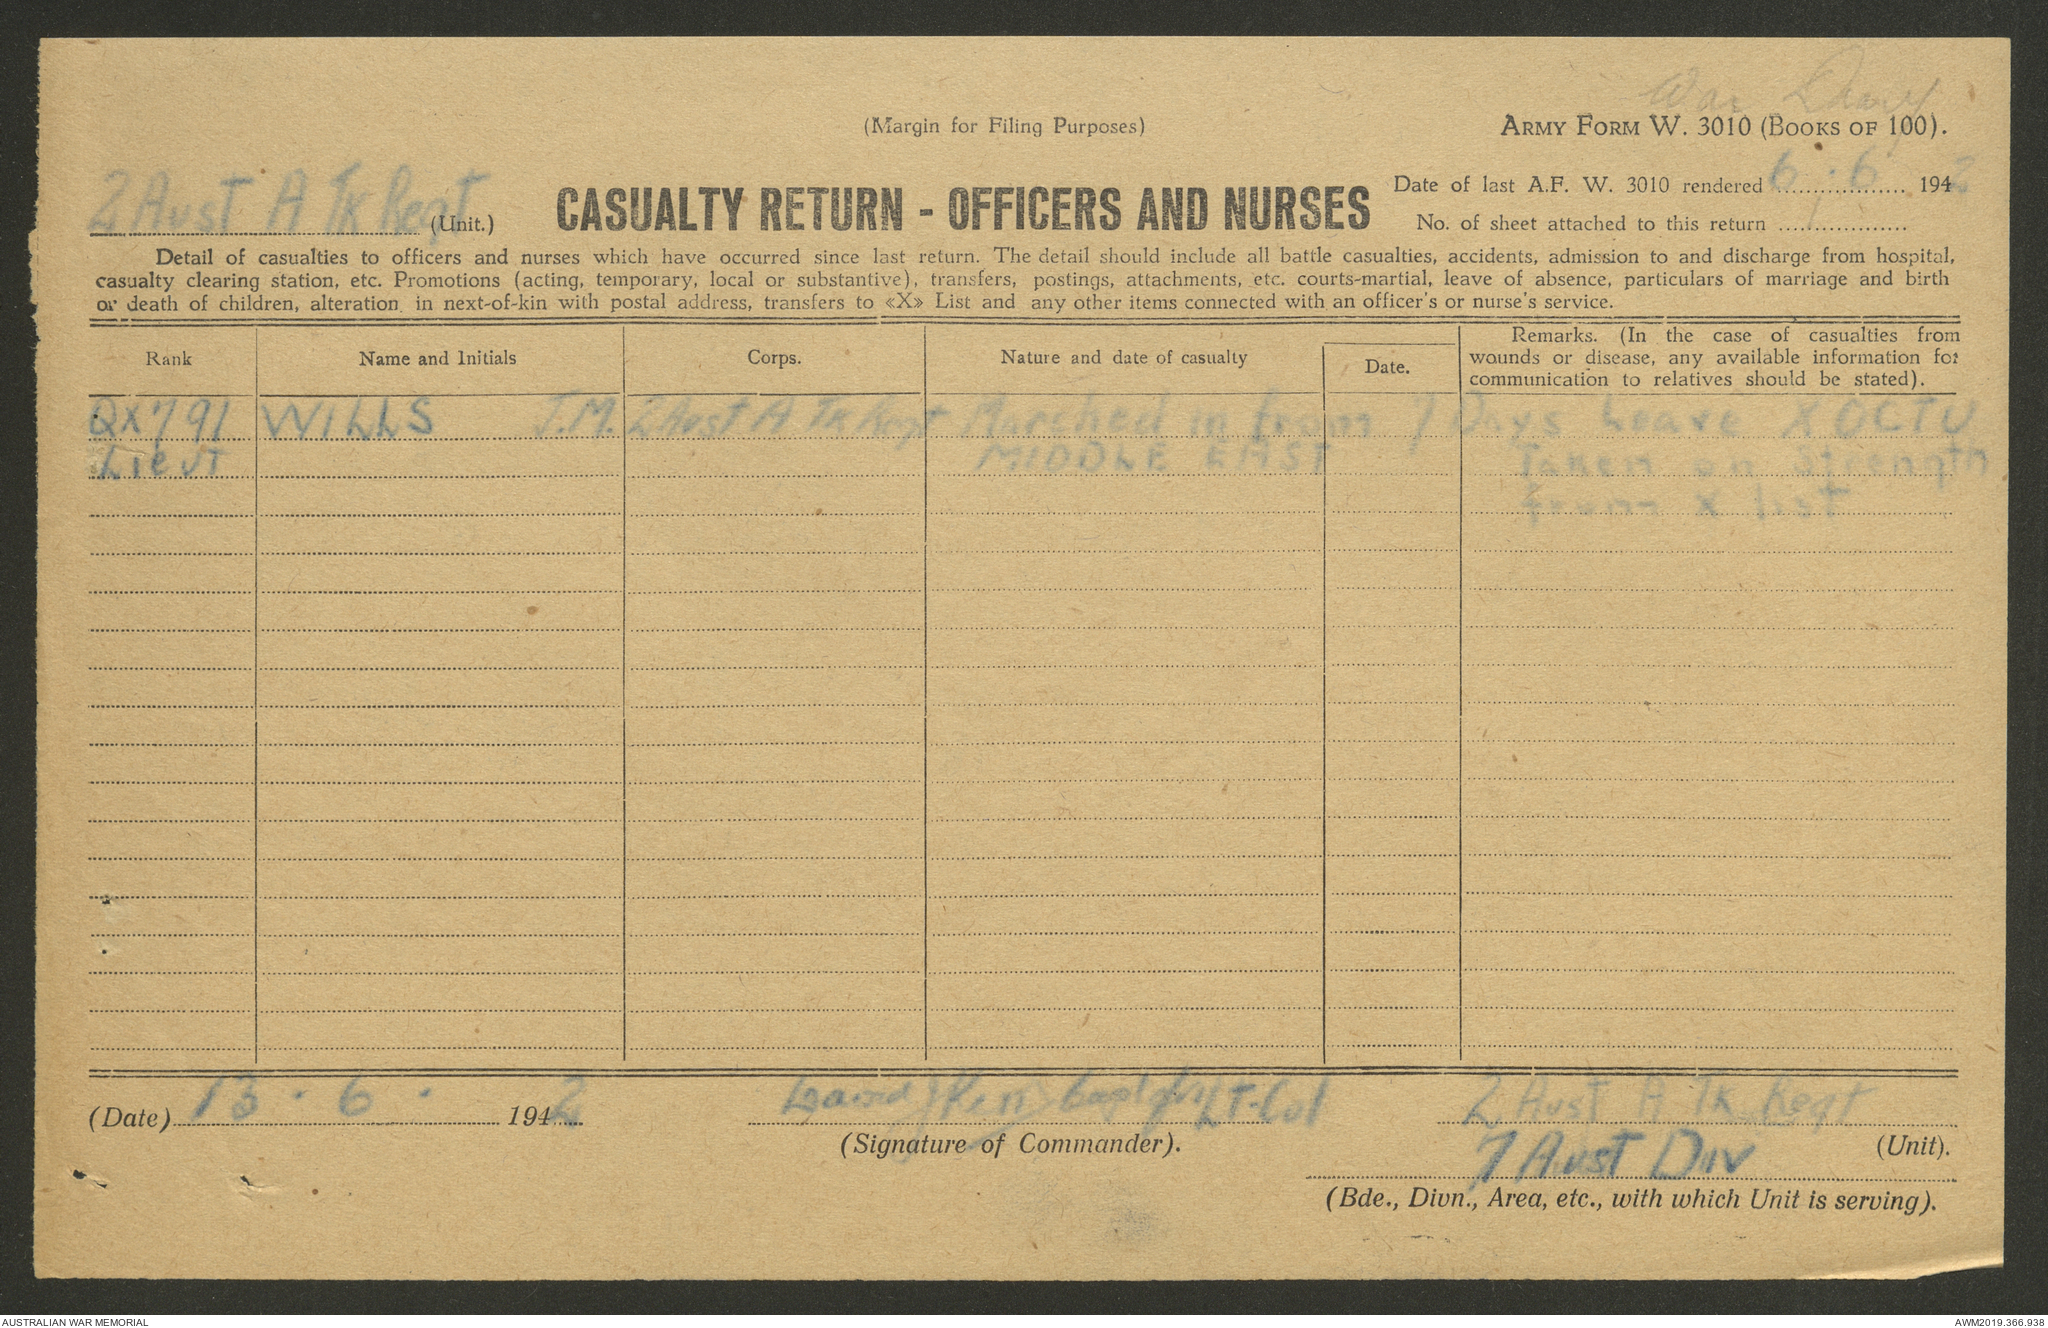 War Diary
(Margin for Filing Purposes)
ARMY FORM W. 3010 (BOOKS OF 100).
2 Aust A Tk Regt (Unit.)
CASUALTY RETURN - OFFICERS AND NURSES
Date of last A.F. W. 3010 rendered 6.6. 1942
No. of sheet attached to this return 1
Detail of casualties to officers and nurses which have occurred since last return. The detail should include all battle casualties, accidents, admission to and discharge from hospital,
casualty clearing station, etc. Promotions (acting, temporary, local or substantive), transfers, postings, attachments, etc. courts-martial, leave of absence, particulars of marriage and birth
or death of children, alteration in next-of-kin with postal address, transfers to «X» List and any other items connected with an officer's or nurse's service.
Rank Name and Initials Corps. Nature and date of casualty Date. Remarks. (In the case of casualties from
wounds or disease, any available information for
communication to relatives should be stated).
QX791 WILLS J.M. 2 Aust A Tk Regt Marched in from 7 Days Leave X OCTU
Lieut MIDDLE EAST Taken on Strength
from X list
(Date) 13.6. 1942 Lt-Col 2 Aust A Tk Regt
(Signature of Commander). (Unit).
7 Aust Div
(Bde., Divn., Area, etc., with which Unit is serving).
AUSTRALIAN WAR MEMORIAL AWM2019.366.938